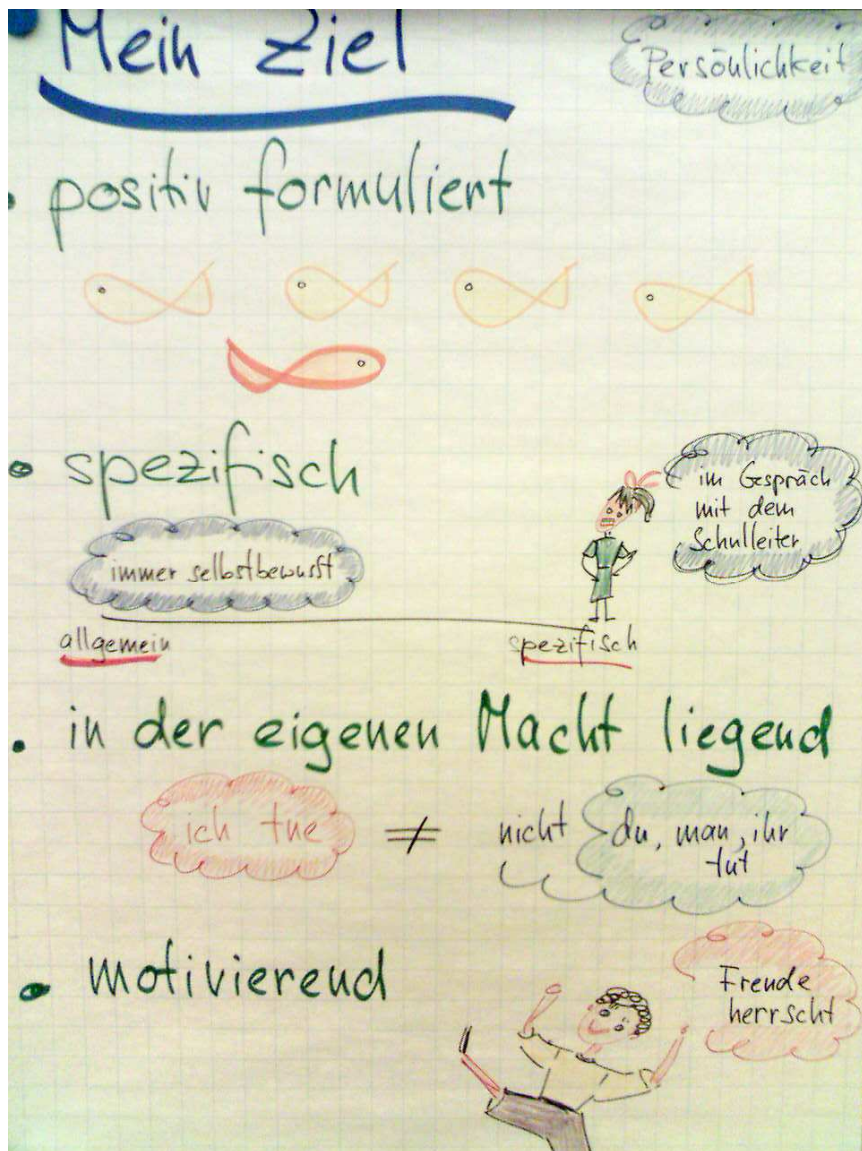 Mein Ziel
Persönlichkeit
• positiv formuliert
• spezifisch
im Gespräch
mit dem
Schulleiter
immer selbstbewusst
allgemein
spezifisch
• in der eigenen Macht liegend
ich tue ≠ nicht du, man, ihr
tut
• motivierend
Freude
herrscht